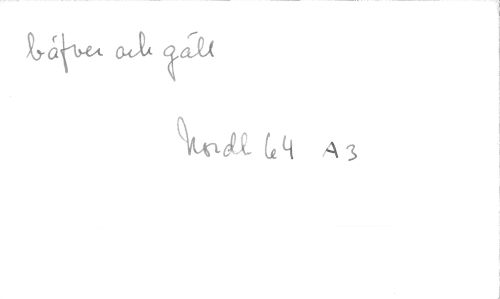 båfver och gåll
Nordl 64 A3